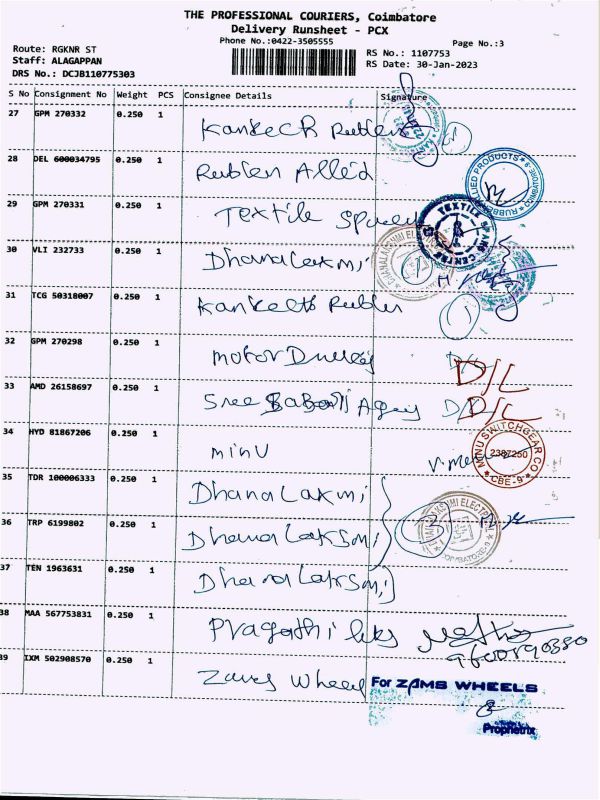 THE PROFESSIONAL COURIERS, Coimbatore
Delivery Runsheet - PCX
Phone No.:0422-3505555
Page No.:3
Route: RGKNR ST
RS No.: 1107753
Staff: ALAGAPPAN
RS Date: 30-Jan-2023
DRS No.: DCJB110775303
S No Consignment No Weight PCS Consignee Details Signature
27 GPM 270332 0.250 1
28 DEL 600034795 0.250 1 Rubien Allied
RUBBER ALLIED PRODUCTS
29 GPM 270331 0.250 1 Textile
TEXTILE CENTRE
30 VLI 232733 0.250 1 Dhanalaxmi
31 TCG 50318007 0.250 1
32 GPM 270298 0.250 1 motor D/L
33 AMD 26158697 0.250 1 Sree D/L
34 HYD 81867206 0.250 1 minu
MINU SWITCHGEAR CO
2387250
CBE-9
35 TDR 100006333 0.250 1 Dhana Laxmi
36 TRP 6199802 0.250 1 Dhana Laksmi 3
37 TEN 1963631 0.250 1 Dhana Laksmi
38 MAA 567753831 0.250 1 Pragathi
9600890380
39 IXM 502908570 0.250 1 Zams Wheel
For ZAMS WHEELS
Proprietrix